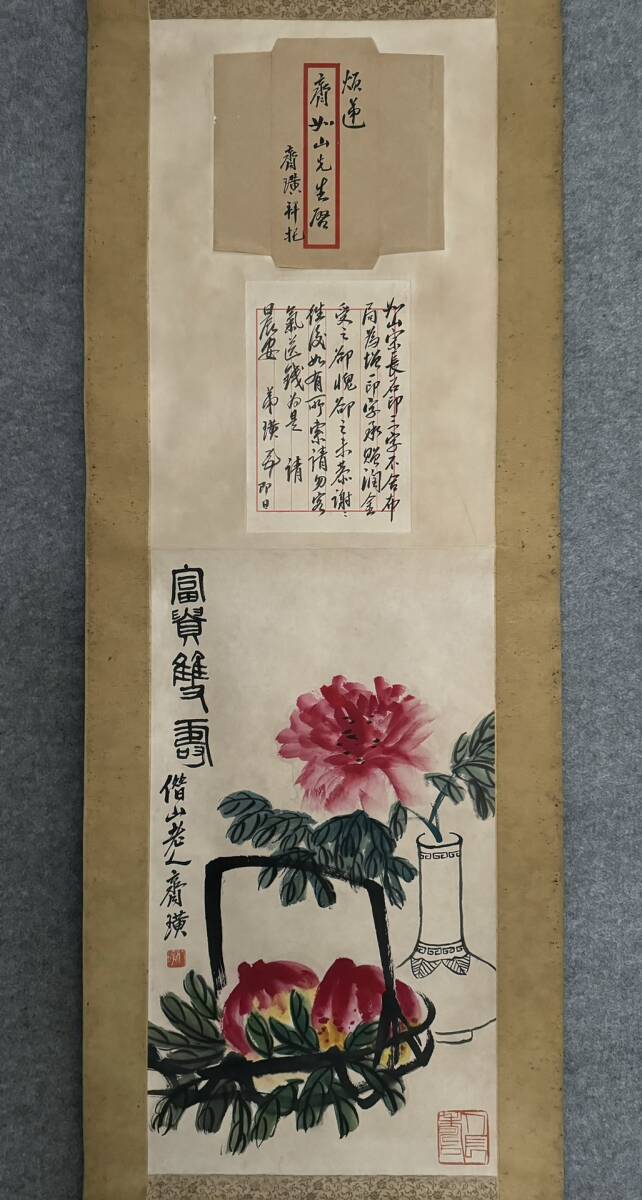 煩遞
齊如山先生啓
齊璜拜托
如山宗長石印三字不合布
局為增一印字承賜潤金
受之卻愧卻之未恭謝謝
往後如有所索請勿客
氣送錢為是 請
晨安 弟璜頓 即日
富貴雙壽
借山老人齊璜